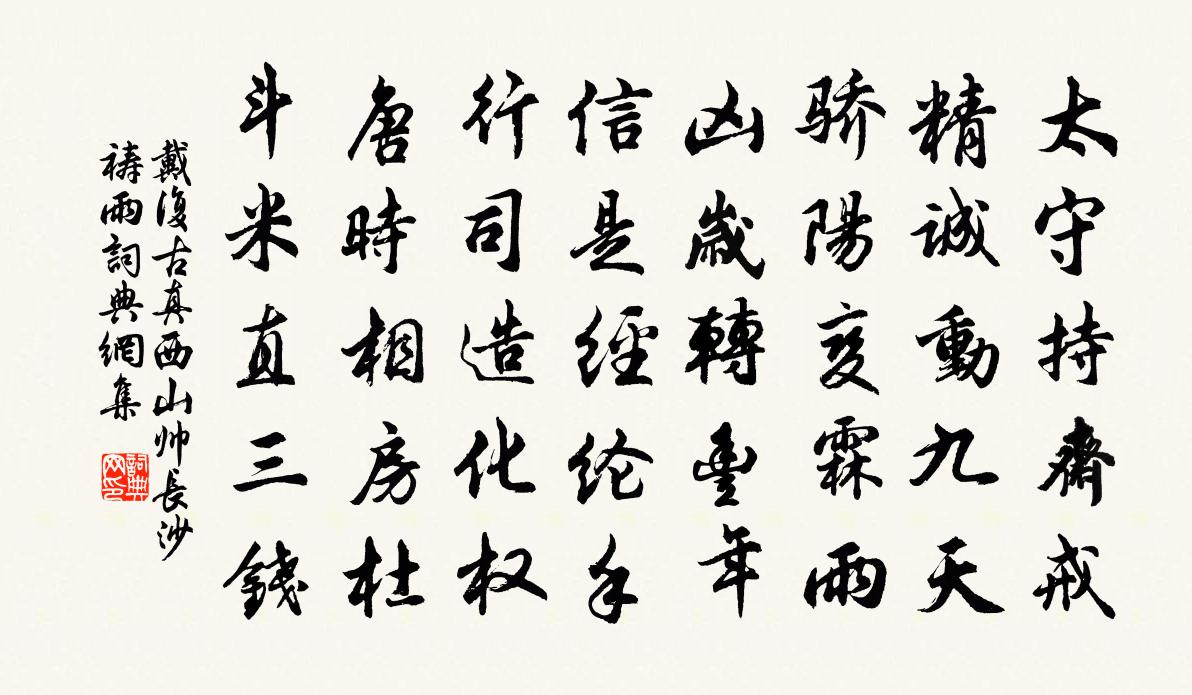 太守持齋戒
精誠動九天
骄陽变霖雨
凶歲轉豊年
信是經纶手
行司造化权
唐時相房杜
斗米直三錢
戴復古真西山帅長沙
祷雨詞典網集
詞典
网印